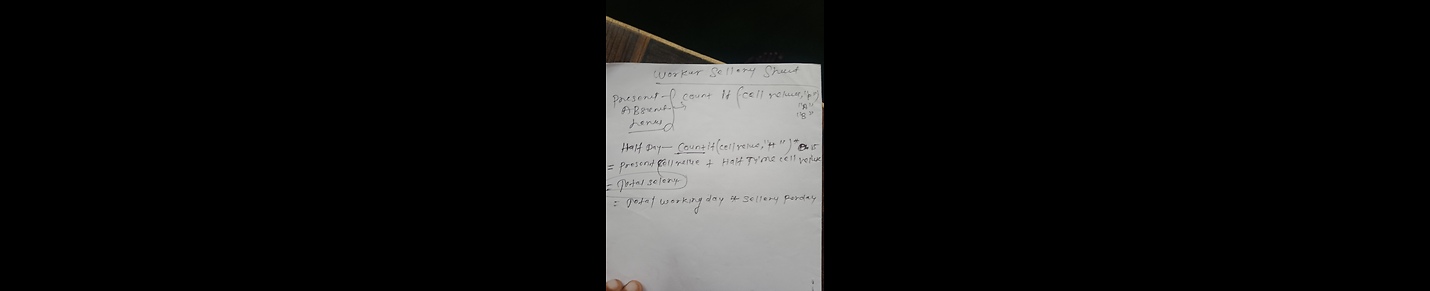 Workur Sellery Sheet
Present - Count If (cell velue, "P")
ABsent "A"
"S"
Half Day - CountIf (cell velue, "H") *
= Present cell velue + Half Time cell velue
= Total sellery
= Total working day * sellery perday